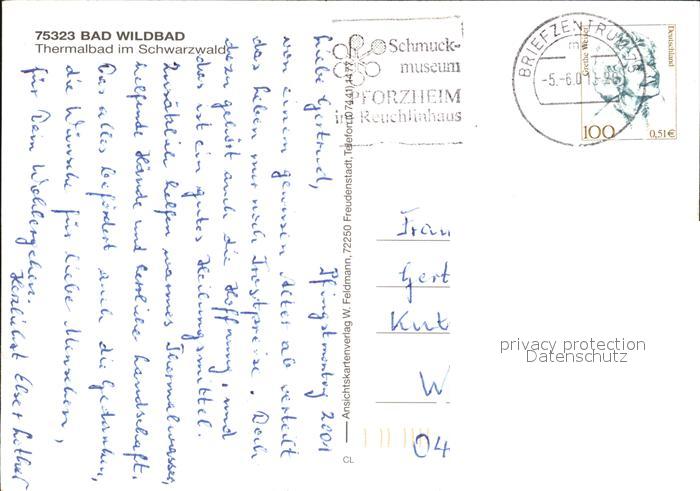 75323 BAD WILDBAD
Thermalbad im Schwarzwald
Liebe Gertrud,
Pfingstmontag 2001
von einem gewissen Alter ab verteilt
das Leben nur noch Trostpreise. Doch
dazu gehört auch die Hoffnung, und
das ist ein gutes Heilungsmittel.
Zusätzlich helfen warmes Thermalwasser,
helfende Hände und herrliche Landschaft.
Das alles befördert auch die Gedanken,
die Wünsche für liebe Menschen,
für Dein Wohlergehen.
Herzlichst Else + Lothar
Ansichtskartenverlag W. Feldmann, 72250 Freudenstadt, Telefon (07441)
CL
Schmuck-
museum
PFORZHEIM
im Reuchlinhaus
BRIEFZENTRUM 75
-5.-6.0
Deutschland
100
0,51€
Frau
Gert
Kut
W
04
privacy protection
Datenschutz